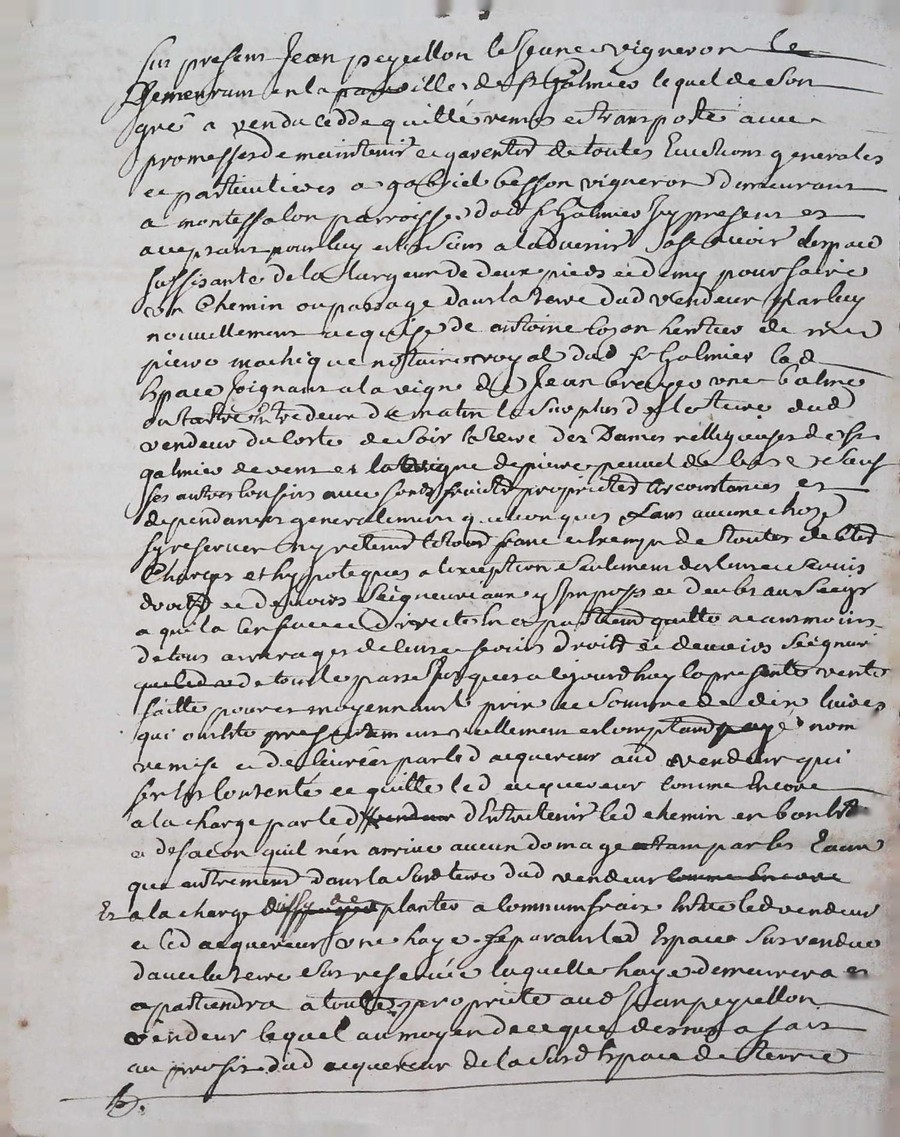 fut present Jean peyellon le Jeune vigneron
demeurant en la ville de st Galmier lequel de son
gré a vendu ceddé quitté remis et transporté avec
promesses de maintenir et garentir de toutes Evictions generales
et particulieres a gabriel besson vigneron demeurant
a montessalon parroisse dud st Galmier Icy present et
acceptant pour luy et les siens a ladvenir Sascavoir Lespace
suffisante de la Largeur de deux pieds et demy pour faire
un Chemin ou passage dans la terre dud vendeur par luy
nouvellement acquise de antoine heritier de
pierre nottaire royal dud st Galmier lad
Espace joignant a la vigne de Jean une balme
ou tertre Entredeux de matin le surplus de la terre dud
vendeur du coste de soir la terre des Dames relligieuses de st
galmier de vent et la vigne de pierre de bize Sauf
ses autres confins avec fonds fruicts proprietés circonstances et
dependances generalement quelconques sans aucune chose
sy reserver ny retenir franc et exempt de toutes debtes
Charges et hypoteques a lexception seulement des cens et servis
droits et devoirs Seigneuriaux y Imposés et deubs au Seigr
a qui la Censive Directe quitte neanmoins
de tous arrerages de cens et servis droits et devoirs Seigneuriaux
de tout le passé Jusques a ajourdhuy la presente vente
faitte pour et moyennant le prix et Somme de dix livres
qui ont été presentement reellement et comptant payé nom
remise et delivrées par led acquereur aud vendeur qui
sen est contenté et quitte led acquereur comme Encore
a la charge par led dEntretenir led chemin en bon
et de facon quil nen arrive aucun domage tant par les Eaux
que autrement dans la Susd terre dud vendeur comme Encore
Et a la charge planter a commun frais Entre led vendeur
et led acquereur une haye separant led Espace Susvendu
davec la terre Sus reservée laquelle haye demeurera et
apartiendra a toute propriete aud Jean peyellon
vendeur lequel au moyen de ce que dessus a fait
au profit dud acquereur de la Susd Espace de terre